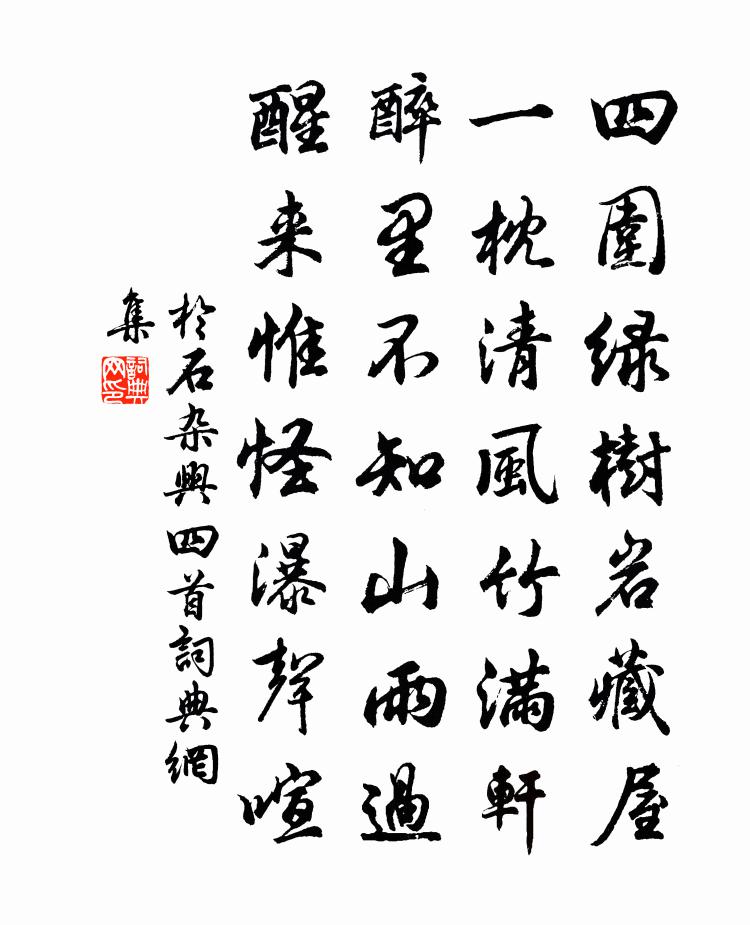 四圍緑樹岩藏屋
一枕清風竹滿軒
醉里不知山雨過
醒来惟怪瀑聲喧
於石杂興四首詞典網
集
詞典網印